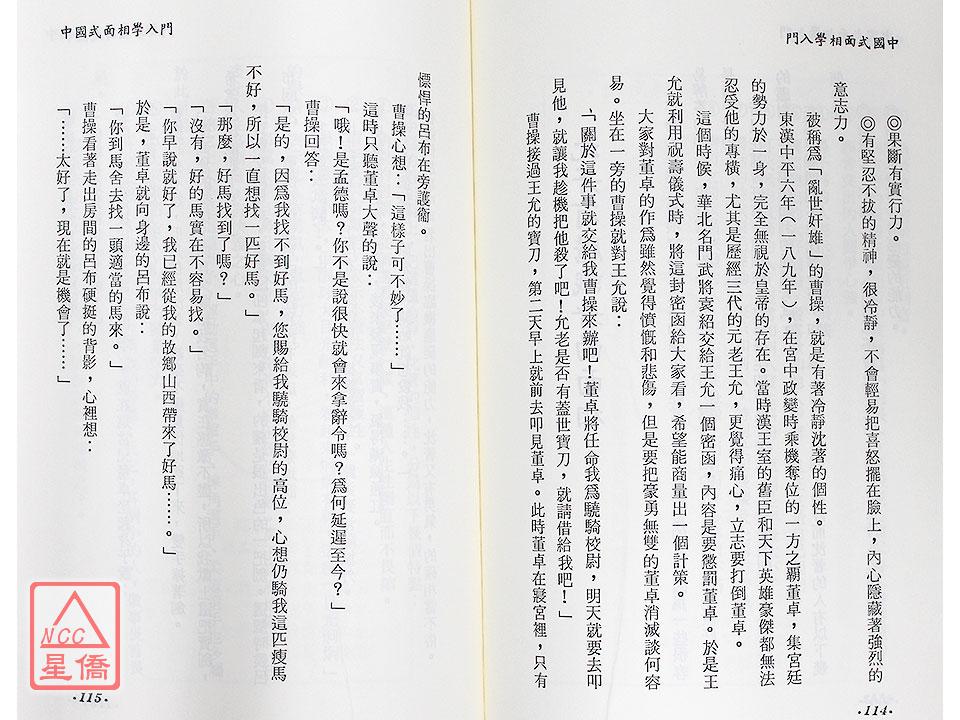 中國式面相學入門
◎果斷有實行力。
◎有堅忍不拔的精神，很冷靜，不會輕易把喜怒擺在臉上，內心隱藏著強烈的
意志力。
被稱爲「亂世奸雄」的曹操，就是有著冷靜沈著的個性。
東漢中平六年（一八九年），在宮中政變時乘機奪位的一方之覇董卓，集宮廷
的勢力於一身，完全無視於皇帝的存在。當時漢王室的舊臣和天下英雄豪傑都無法
忍受他的專橫，尤其是歷經三代的元老王允，更覺得痛心，立志要打倒董卓。
這個時候，華北名門武將袁紹交給王允一個密函，內容是要懲罰董卓。於是王
允就利用祝壽儀式時，將這封密函給大家看，希望能商量出一個計策。
大家對董卓的作爲雖然覺得憤慨和悲傷，但是要把豪勇無雙的董卓消滅談何容
易。坐在一旁的曹操就對王允說：
「關於這件事就交給我曹操來辦吧！董卓將任命我爲驍騎校尉，明天就要去叩
見他，就讓我趁機把他殺了吧！允老是否有蓋世寶刀，就請借給我吧！」
曹操接過王允的寶刀，第二天早上就前去叩見董卓。此時董卓在寢宮裡，只有
·114·
中國式面相學入門
慓悍的呂布在旁護衞。
曹操心想：「這樣子可不妙了……」
這時只聽董卓大聲的說：
「哦！是孟德嗎？你不是說很快就會來拿辭令嗎？爲何延遲至今？」
曹操回答：
「是的，因爲我找不到好馬，您賜給我驍騎校尉的高位，心想仍騎我這匹瘦馬
不好，所以一直想找一匹好馬。」
「那麼，好馬找到了嗎？」
「沒有，好的馬實在不容易找。」
「你早說就好了，我已經從我的故鄉山西帶來了好馬……。」
於是，董卓就向身邊的呂布說：
「你到馬舍去找一頭適當的馬來。」
曹操看著走出房間的呂布硬挺的背影，心裡想：
「……太好了，現在就是機會了……」
·115·
NCC
星僑